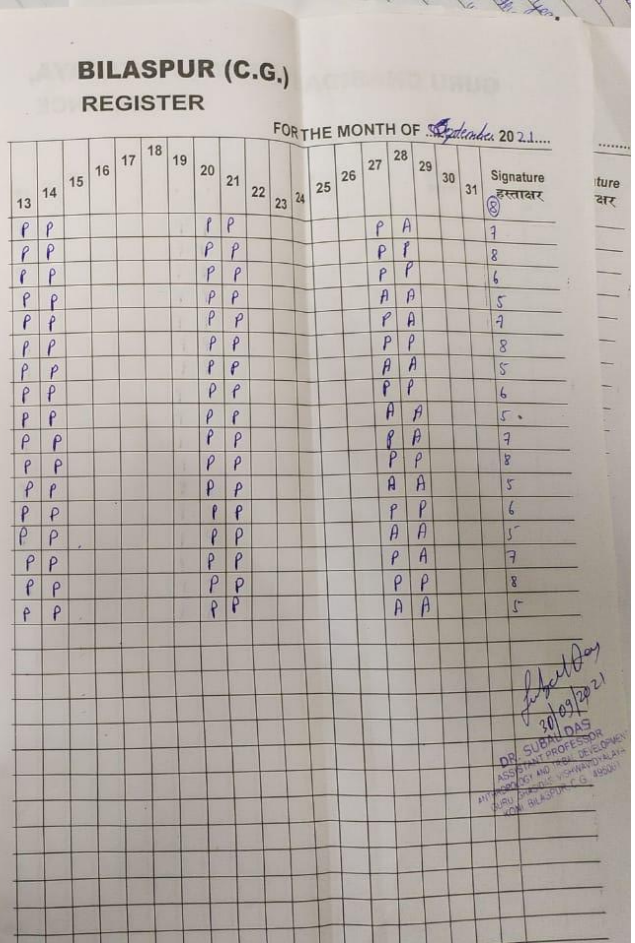 BILASPUR (C.G.)
REGISTER
FOR THE MONTH OF September 2021
13 14 15 16 17 18 19 20 21 22 23 24 25 26 27 28 29 30 31 Signature
हस्ताक्षर
8
P P P P P A 7
P P P P P P 8
P P P P P P 6
P P P P A A 5
P P P P P A 7
P P P P P P 8
P P P P A A 5
P P P P P P 6
P P P P A A 5
P P P P P A 7
P P P P P P 8
P P P P A A 5
P P P P P P 6
P P P P A A 5
P P P P P A 7
P P P P P P 8
P P P P A A 5
30/09/2021
DR. SUBAL DAS
ASSISTANT PROFESSOR
ANTHROPOLOGY AND TRIBAL DEVELOPMENT
GURU GHASIDAS VISHWAVIDYALAYA
KONI BILASPUR C.G. 495001